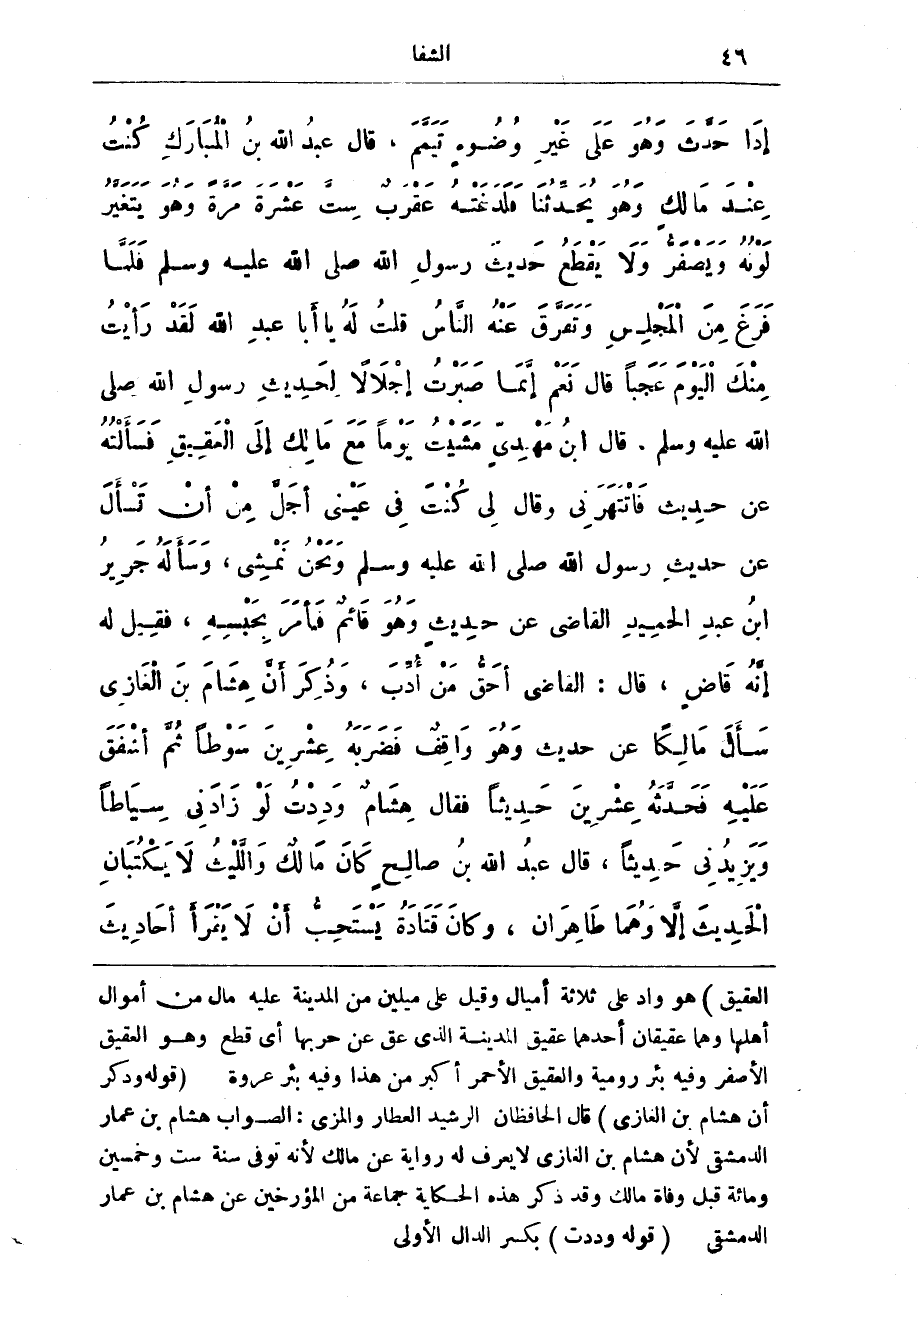 ٤٦ الشفا
إِذَا حَدَّثَ وَهُوَ عَلَى غَيْرِ وُضُوءٍ تَيَمَّمَ ، قال عبدُ الله بنُ الْمُبَارَكِ كُنْتُ
عِنْدَ مَالِكٍ وَهُوَ يُحَدِّثُنَا فَلَدَغَتْهُ عَقْرَبٌ سِتَّ عَشْرَةَ مَرَّةً وَهُوَ يَتَغَيَّرُ
لَوْنُهُ وَيَصْفَرُّ وَلَا يَقْطَعُ حَدِيثَ رسولِ الله صلى الله عليه وسلم فَلَمَّا
فَرَغَ مِنَ الْمَجْلِسِ وَتَفَرَّقَ عَنْهُ النَّاسُ قلتُ لَهُ يا أَبا عبدِ الله لَقَدْ رَأَيْتُ
مِنْكَ الْيَوْمَ عَجَباً قال نَعَمْ إِنَّمَا صَبَرْتُ إِجْلَالًا لِحَدِيثِ رسولِ الله صلى
الله عليه وسلم . قال ابنُ مَهْدِيٍّ مَشَيْتُ يَوْماً مَعَ مَالِكٍ إلَى الْعَقِيقِ فَسَأَلْتُهُ
عن حديثٍ فَانْتَهَرَنِى وقال لِى كُنْتَ فِى عَيْنِى أَجَلَّ مِنْ أَنْ تَسْأَلَ
عن حديثِ رسول الله صلى الله عليه وسلم وَنَحْنُ نَمْشِى ، وَسَأَلَهُ جَرِيرُ
ابنُ عبدِ الحميدِ القاضى عن حديثٍ وَهُوَ قَائِمٌ فَأَمَرَ بِحَبْسِهِ ، فقيل له
إِنَّهُ قَاضٍ ، قال : القاضى أَحَقُّ مَنْ أُدِّبَ ، وَذُكِرَ أَنَّ هِشَامَ بنَ الْغَازِى
سَأَلَ مَالِكًا عن حديث وَهُوَ وَاقِفٌ فَضَرَبَهُ عِشْرِينَ سَوْطاً ثُمَّ أَشْفَقَ
عَلَيْهِ فَحَدَّثَهُ عِشْرِينَ حَدِيثاً فقال هِشَامٌ وَدِدْتُ لَوْ زَادَنِى سِيَاطاً
وَيَزِيدُنِى حَدِيثاً ، قال عبدُ الله بنُ صالحٍ كَانَ مَالِكٌ وَاللَّيْثُ لَا يَكْتُبَانِ
الْحَدِيثَ إِلَّا وَهُمَا طَاهِرَانِ ، وكانَ قَتَادَةُ يَسْتَحِبُّ أَنْ لَا يَقْرَأَ أَحَادِيثَ
العقيق ) هو واد على ثلاثة أميال وقيل على ميلين من المدينة عليه مال من أموال
أهلها وهما عقيقان أحدهما عقيق المدينة الذى عق عن حربها أى قطع وهو العقيق
الأصفر وفيه بئر رومية والعقيق الأحمر أكبر من هذا وفيه بئر عروة ( قوله وذكر
أن هشام بن الغازى ) قال الحافظان الرشيد العطار والمزى : الصواب هشام بن عمار
الدمشقى لأن هشام بن الغازى لايعرف له رواية عن مالك لأنه توفى سنة ست وخمسين
ومائة قبل وفاة مالك وقد ذكر هذه الحكاية جماعة من المؤرخين عن هشام بن عمار
الدمشقى ( قوله وددت ) بكسر الدال الأولى